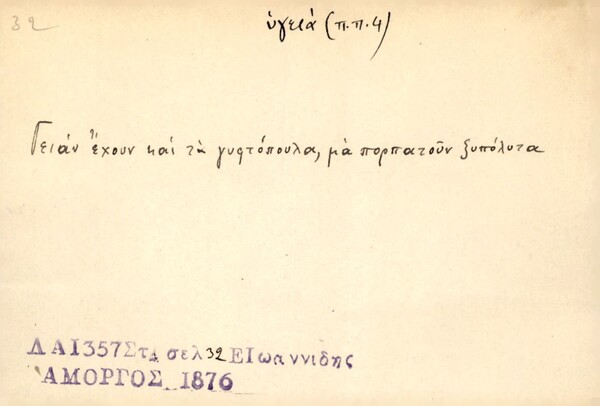 32
ὑγειά (π.π.4)
Γειάν ἔχουν καί τὰ γυφτόπουλα, μὰ πορπατοῦν ξυπόλυτα
ΛΑ1357Στ. σελ 32 ΕΙωαννιδης
ΑΜΟΡΓΟΣ 1876